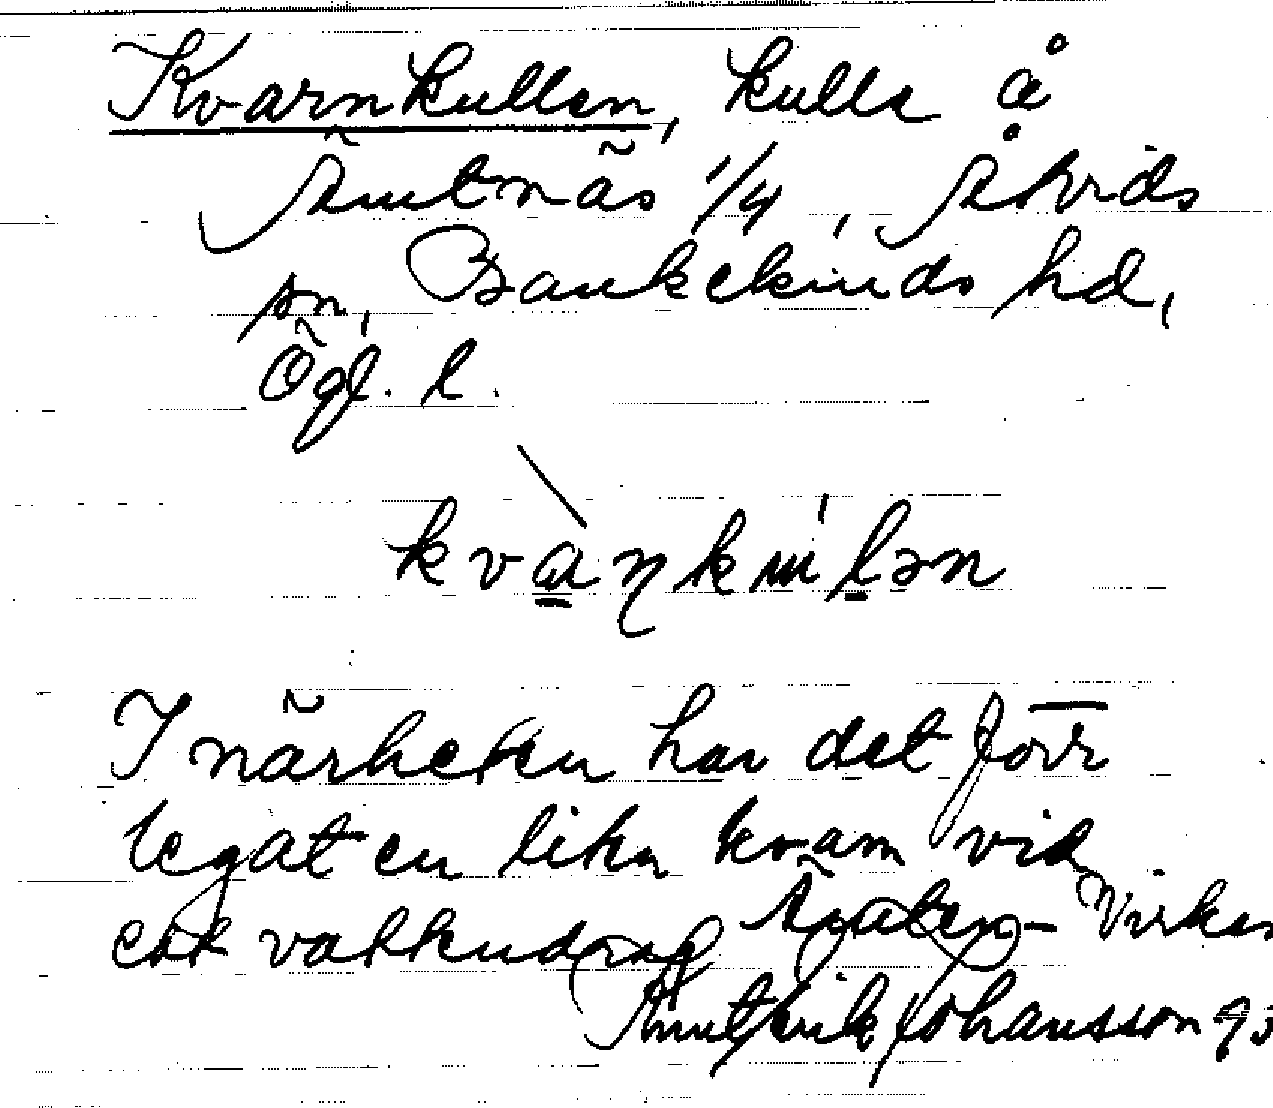 Kvarnkullen, kulle å
Ämtnäs 1/4, Åtvids
sn, Bankekinds hd,
Ögl. l.
kvàŋkuĺlən
I närheten har det förr
legat en liten kvarn vid
ett vattendrag Ämten - Virken
Knut Erik Johansson 93